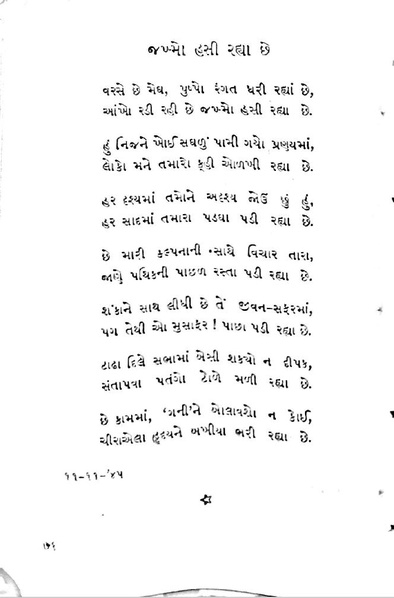 જખ્મો હસી રહ્યા છે
વરસે છે મેઘ, પુષ્પો રંગત ધરી રહ્યાં છે,
આંખો રડી રહી છે જખ્મો હસી રહ્યા છે.
હું નિજને ખોઈ સઘળું પામી ગયો પ્રણયમાં,
લોકો મને તમારો કહી ઓળખી રહ્યા છે.
હર દૃશ્યમાં તમોને અદૃશ્ય જોઉં છું હું,
હર સાદમાં તમારા પડઘા પડી રહ્યા છે.
છે મારી કલ્પનાની સાથે વિચાર તારા,
જાણે પથિકની પાછળ રસ્તા પડી રહ્યા છે.
શંકાને સાથ લીધી છે તેં જીવન-સફરમાં,
પગ તેથી ઓ મુસાફર! પાછા પડી રહ્યા છે.
ટાઢા દિલે સભામાં બેસી શક્યો ન દીપક,
સંતાપવા પતંગો ટોળે મળી રહ્યા છે.
છે કામમાં, ‘ગની’ને બોલાવશો ન કોઈ,
ચીરાએલા હૃદયને બખીયા ભરી રહ્યા છે.
૧૧-૧૧-’૪૫
૫૬